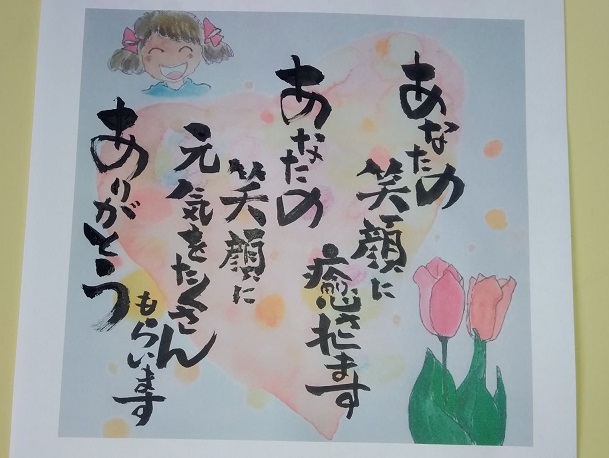 あなたの
笑顔に
癒されます
あなたの
笑顔に
元気をたくさん
もらいます
ありがとう